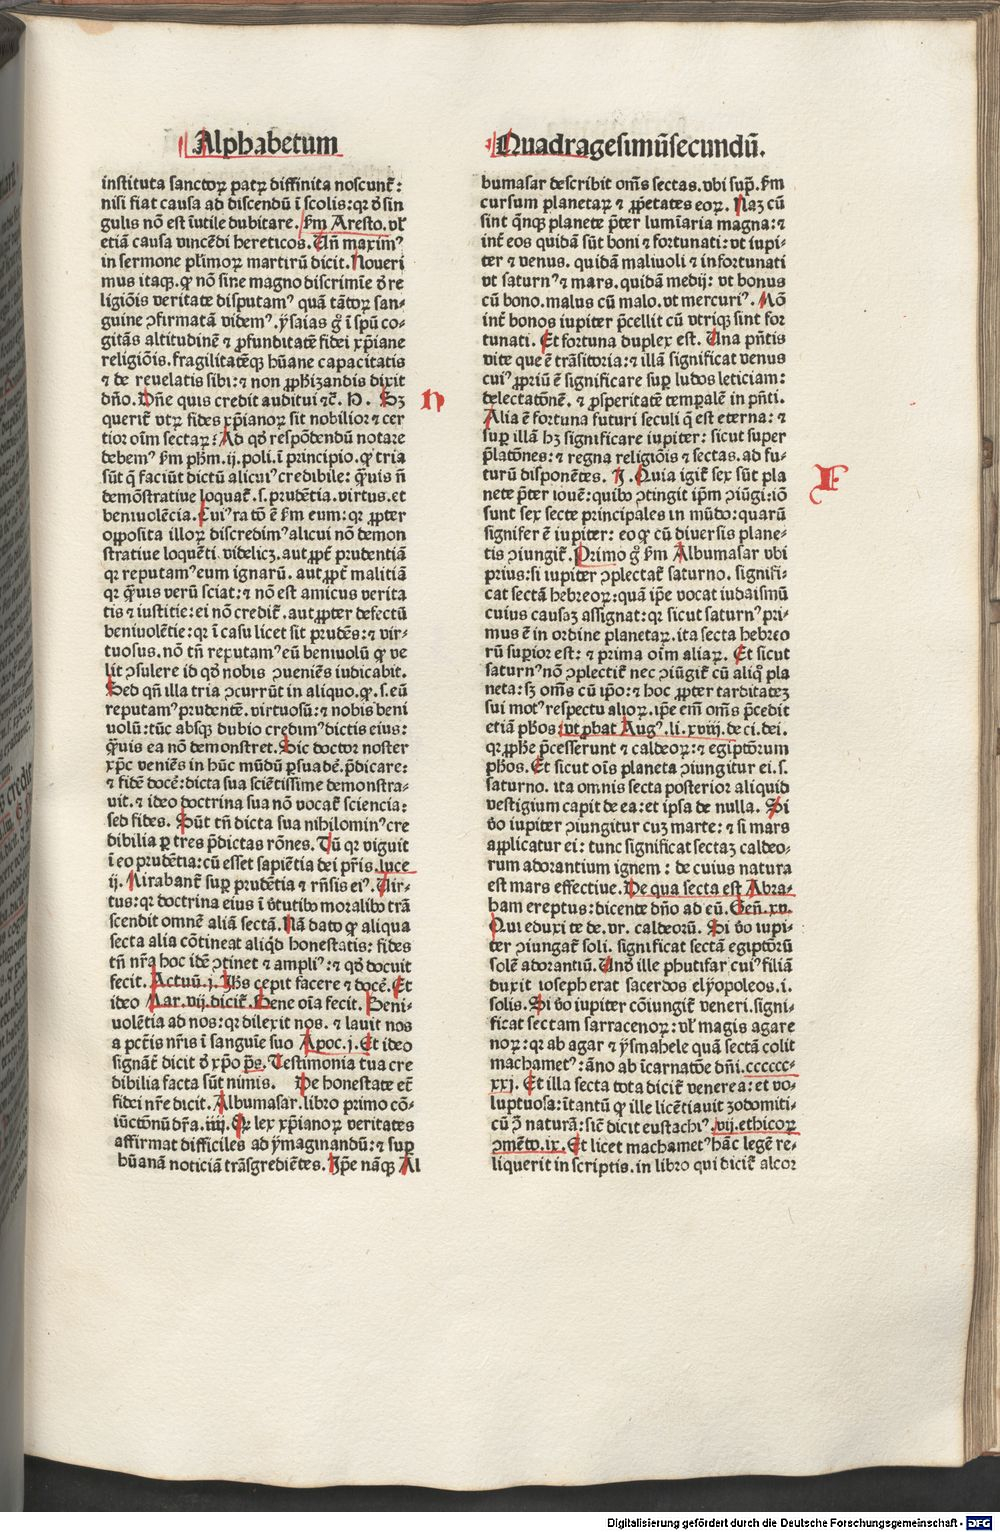 Alphabetum
instituta sanctoꝝ patꝝ diffinita noscunt᷑:
nisi fiat causa ad discendū ī scolis: qꝛ ð sin
gulis nō est īutile dubitare. ẜm Aresto. vl̓
etiā causa vincēdi hereticos. Uñ maximꝰ
in sermone pl̓imoꝝ martirū dicit. Noueri
mus itaqꝫ. ꝙ nō sine magno discrimīe ð re
ligiōis veritate disputamꝰ quā tātoꝝ san-
guine ↄfirmatā videmꝰ. ẏsaias g̊ ī sp̄ū co-
gitās altitudinē ⁊ ꝓfunditatē fidei xp̄iane
religiōis. fragilitatēqꝫ hūane capacitatis
⁊ de reuelatis sibi: ⁊ non ꝓphīzandis dixit
dño. Dñe quis credit auditui ⁊c̄. H. Sꝫ
querit᷑ vtꝝ fides xp̄ianoꝝ sit nobilior ⁊ cer
tior oīm sectaꝝ: Ad qð respōdendū notare
debemꝰ ẜm ph̄m. ij. poli. ī principio. ꝙ tria
sūt q̄ faciūt dictū alicuiꝰ credibile: q̄uis ñ
demōstratiue loquat᷑. s. prudētia. virtus. et
beniuolēcia. Cuiꝰ ratō ē ẜm eum: qꝛ ꝓpter
opposita illoꝝ discredimꝰ alicui nō demon
stratiue loquēti videlicꝫ. aut ꝓpt̄ prudentiā
qꝛ reputamꝰ eum ignarū. aut ꝓpt̄ malitiā
qꝛ q̄uis verū sciat: ⁊ nō est amicus verita
tis ⁊ iustitie: ei nō credit᷑. aut ꝓpter defectū
beniuolētie: qꝛ ī casu licet sit prudēs: ⁊ vir-
tuosus. nō tñ reputamꝰ eū beniuolū ꝙ ve
lit ↄsulere id qð nobis ↄueniēs iudicabit.
Sed qñ illa tria ↄcurrūt in aliquo. ꝙ. s. eū
reputamꝰ prudentē. virtuosū: ⁊ nobis beni
uolū: tūc absqꝫ dubio credimꝰ dictis eius:
q̄uis ea nō demonstret. Sic doctor noster
xp̄c veniēs in hūc mūdū ꝑsuadē. p̄dicare:
⁊ fidē docē: dicta sua sciētissime demonstra-
uit. ⁊ ideo doctrina sua nō vocat᷑ sciencia:
sed fides. Sūt tñ dicta sua nihilominꝰ cre
dibilia ꝑ tres p̄dictas rōnes. Tū qꝛ viguit
ī eo prudētia: cū esset sapiētia dei pr̄is. luce
ij. Mirabant᷑ suꝑ prudētia ⁊ rñsis eiꝰ. Uir-
tus: qꝛ doctrina eius ī v̓tutibꝯ moralibꝯ trā
scendit omnē aliā sectā. Nā dato ꝙ aliqua
secta alia cōtineat aliq̓d honestatis: fides
tñ nr̄a hoc idē ↄtinet ⁊ ampliꝰ: ⁊ qð docuit
fecit. Actuū. j. Ih̄s cepit facere ⁊ docē. Et
ideo Mar. vij. dicit᷑. Bene oīa fecit. Beni-
uolētia ad nos: qꝛ dilexit nos. ⁊ lauit nos
a pct̄is nr̄is ī sanguīe suo Apoc. j. Et ideo
signāt᷑ dicit ð xp̄o ps̄. Testimonia tua cre
dibilia facta sūt nimis. De honestate et᷑
fidei nr̄e dicit. Albumasar. libro primo cō-
iūctōnū dr̄a. iiij. Qꝛ lex xp̄ianoꝝ veritates
affirmat difficiles ad ẏmaginandū: ⁊ suꝑ
hūanā noticiā trāsgrediētes. Ip̄e nāqꝫ Al
H
Quadragesimūsecundū.
bumasar describit om̄s sectas. vbi sup̄. ẜm
cursum planetaꝝ ⁊ ꝓp̄etates eoꝝ. Naꝫ cū
sint q̄nqꝫ planete p̄ter lumīaria magna: ⁊
int̄ eos quidā sūt boni ⁊ fortunati: vt iupi-
ter ⁊ venus. quidā maliuoli ⁊ infortunati
vt saturnꝰ ⁊ mars. quidā medij: vt bonus
cū bono. malus cū malo. vt mercuriꝰ. Mō
int̄ bonos iupiter p̄cellit cū vtriqꝫ sint for
tunati. Et fortuna duplex est. Una p̄ntis
vite que ē trāsitoria: ⁊ illā significat venus
cuiꝰ ꝓpriū ē significare suꝑ ludos leticiam:
delectatōnē. ⁊ ꝓsperitatē temꝑalē in p̄nti.
Alia ē fortuna futuri seculi q̄ est eterna: ⁊
suꝑ illā hꝫ significare iupiter: sicut super
p̄latōnes: ⁊ regna religiōis ⁊ sectas. ad fu-
turū disponētes. J. Quia igit᷑ sex sūt pla
nete p̄ter iouē: quibꝯ ↄtingit ip̄m ↄiūgi: iō
sunt sex secte principales in mūdo: quarū
signifer ē iupiter: eo ꝙ cū diuersis plane-
tis ↄiungit᷑. Primo g̊ ẜm Albumasar vbi
prius: si iupiter ↄplectat᷑ saturno. signifi-
cat sectā hebreoꝝ: quā ip̄e vocat iudaismū
cuius causaꝫ assignat: qꝛ sicut saturnꝰ pri-
mus ē in ordine planetaꝝ. ita secta hebreo
rū suꝑior est: ⁊ prima oīm aliaꝝ. Et sicut
saturnꝰ nō ↄplectit᷑ nec ↄiūgit᷑ cū aliq̓ pla
neta: sꝫ om̄s cū ip̄o: ⁊ hoc ꝓpter tarditateꝫ
sui motꝰ respectu alioꝝ. ip̄e em̄ om̄s p̄cedit
etiā ph̄os. vt ꝓbat Augꝰ. li. xviij. de ci. dei.
qꝛ ꝓph̄e p̄cesserunt ⁊ caldeoꝝ: ⁊ egiptōrum
ph̄os. Et sicut oīs planeta ↄiungitur ei. s.
saturno. ita omnis secta posterior aliquid
vestigium capit de ea: et ipsa de nulla. Si
v̓o iupiter ↄiungitur cuꝫ marte: ⁊ si mars
applicatur ei: tunc significat sectaꝫ caldeo-
rum adorantium ignem: de cuius natura
est mars effectiue. De qua secta est Abra-
ham ereptus: dicente dño ad eū. Geñ. xv.
Qui eduxi te de. vr. caldeorū. Si v̓o iupi-
ter ↄiungat᷑ soli. significat sectā egiptōrū
solē adorantiū. Unð ille phutifar cuiꝰ filiā
duxit ioseph erat sacerdos elẏopoleos. i.
solis. Si v̓o iupiter cōiungit᷑ veneri. signi-
ficat sectam sarracenoꝝ: vl̓ magis agare
noꝝ: qꝛ ab agar ⁊ ẏsmahele quā sectā colit
machametꝰ: āno ab īcarnatōe dñi. cccccc-
xxj. Et illa secta tota dicit᷑ venerea: et vo-
luptuosa: ītantū ꝙ ille licētiauit zodomiti-
cū ꝯ̄ naturā: sic̄ dicit eustachiꝰ. vij. ethicoꝝ
ↄmēto. ix. Et licet machametꝰ hāc legē re-
liquerit in scriptis. in libro qui dicit᷑ alcor
F
Digitalisierung gefördert durch die Deutsche Forschungsgemeinschaft - DFG